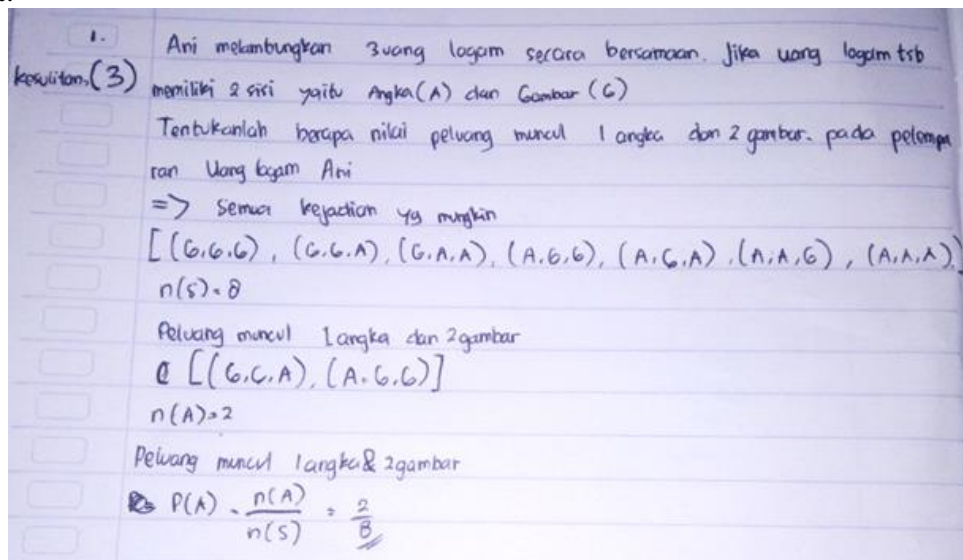 1. Ani melambungkan 3 uang logam secara bersamaan. Jika uang logam tsb
kesulitan, (3) memiliki 2 sisi yaitu Angka (A) dan Gambar (G)
Tentukanlah berapa nilai peluang muncul 1 angka dan 2 gambar. pada pelempa
ran Uang logam Ani
=> Semua kejadian yg mungkin
[(G.G.G), (G.G.A), (G.A.A), (A.G,G), (A,G,A), (A,A,G), (A,A,A)]
n(s) = 8
Peluang muncul 1 angka dan 2 gambar
[(G,G,A), (A.G,G)]
n(A) = 2
Peluang muncul 1 angka & 2 gambar
P(A) = n(A)/n(S) = 2/8